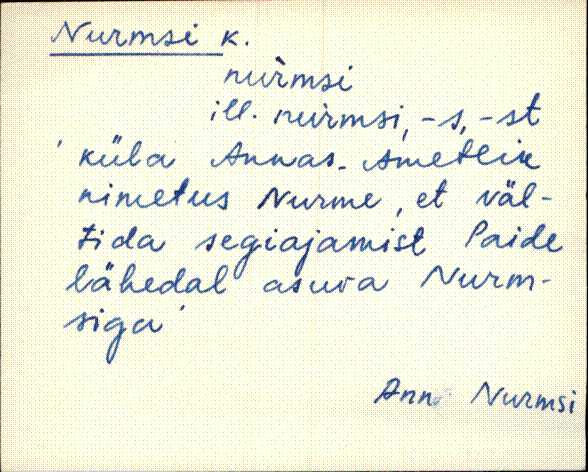 Nurmsi k.
nuřmsi
ill. nuřmsi, -s, -st
' küla Annas. Ametlik
nimetus Nurme, et väl-
tida segiajamist Paide
lähedal asuva Nurm-
siga'
Ann Nurmsi